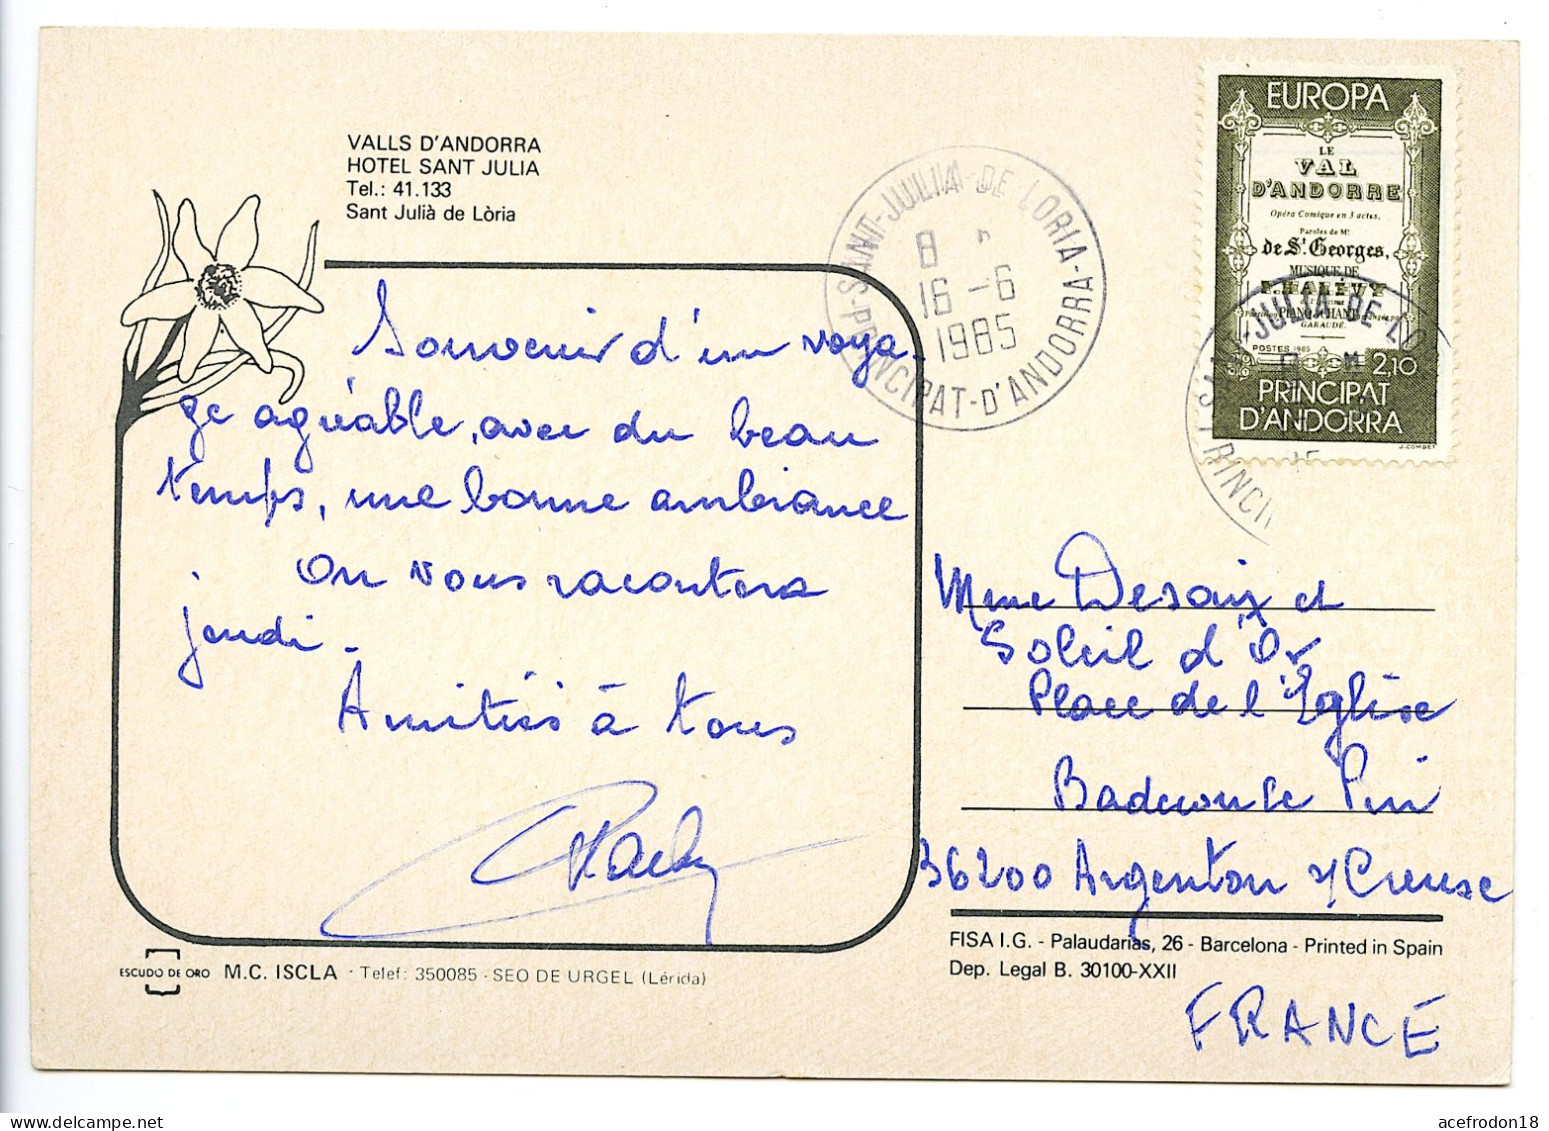 VALLS D'ANDORRA
HOTEL SANT JULIA
Tel.: 41.133
Sant Julià de Lòria
Souvenir d'un voya-
ge agréable, avec du beau
temps, une bonne ambiance
On vous racontera
jeudi.
Amitiés à tous
SANT-JULIA-DE LORIA-
PRINCIPAT-D'ANDORRA
8
16-6
1985
EUROPA
LE
VAL
D'ANDORRE
Opéra Comique en 3 actes,
Paroles de Mr
de St Georges,
MUSIQUE DE
F. HALÉVY
PIANO CHANT
GARAUDÉ.
POSTES 1985
2,10
PRINCIPAT
D'ANDORRA
J. COMBET
JULIA-DE-LO
PRINCI
Mme Desaix et
Soleil d'Or
Place de l'Eglise
Badecon le Pin
36200 Argenton s/Creuse
FISA I.G. - Palaudarias, 26 - Barcelona - Printed in Spain
Dep. Legal B. 30100-XXII
FRANCE
ESCUDO DE ORO M.C. ISCLA - Telef: 350085 - SEO DE URGEL (Lérida)
acefrodon18